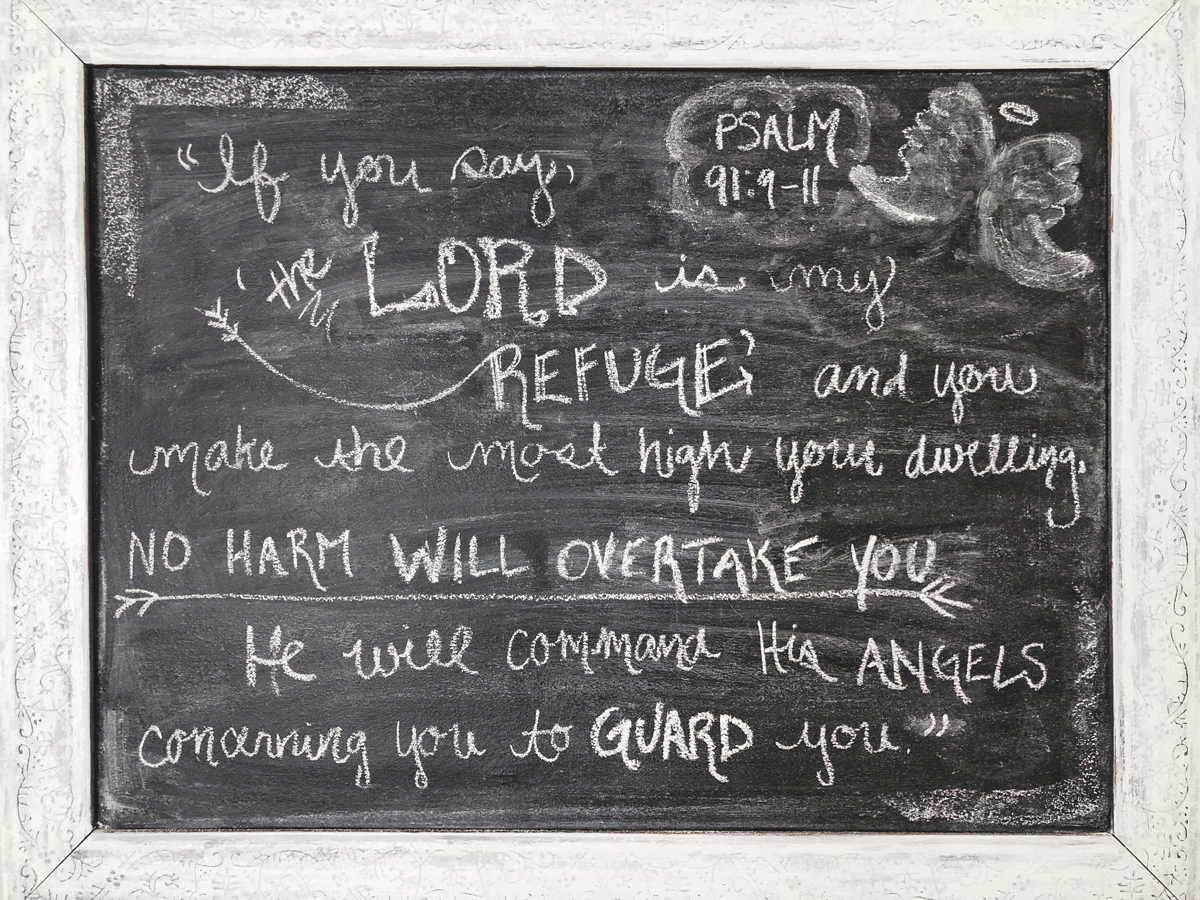 PSALM
91:9-11
“If you say,
‘the LORD is my
REFUGE’, and you
make the most high your dwelling,
NO HARM WILL OVERTAKE YOU
He will command His ANGELS
concerning you to GUARD you.”